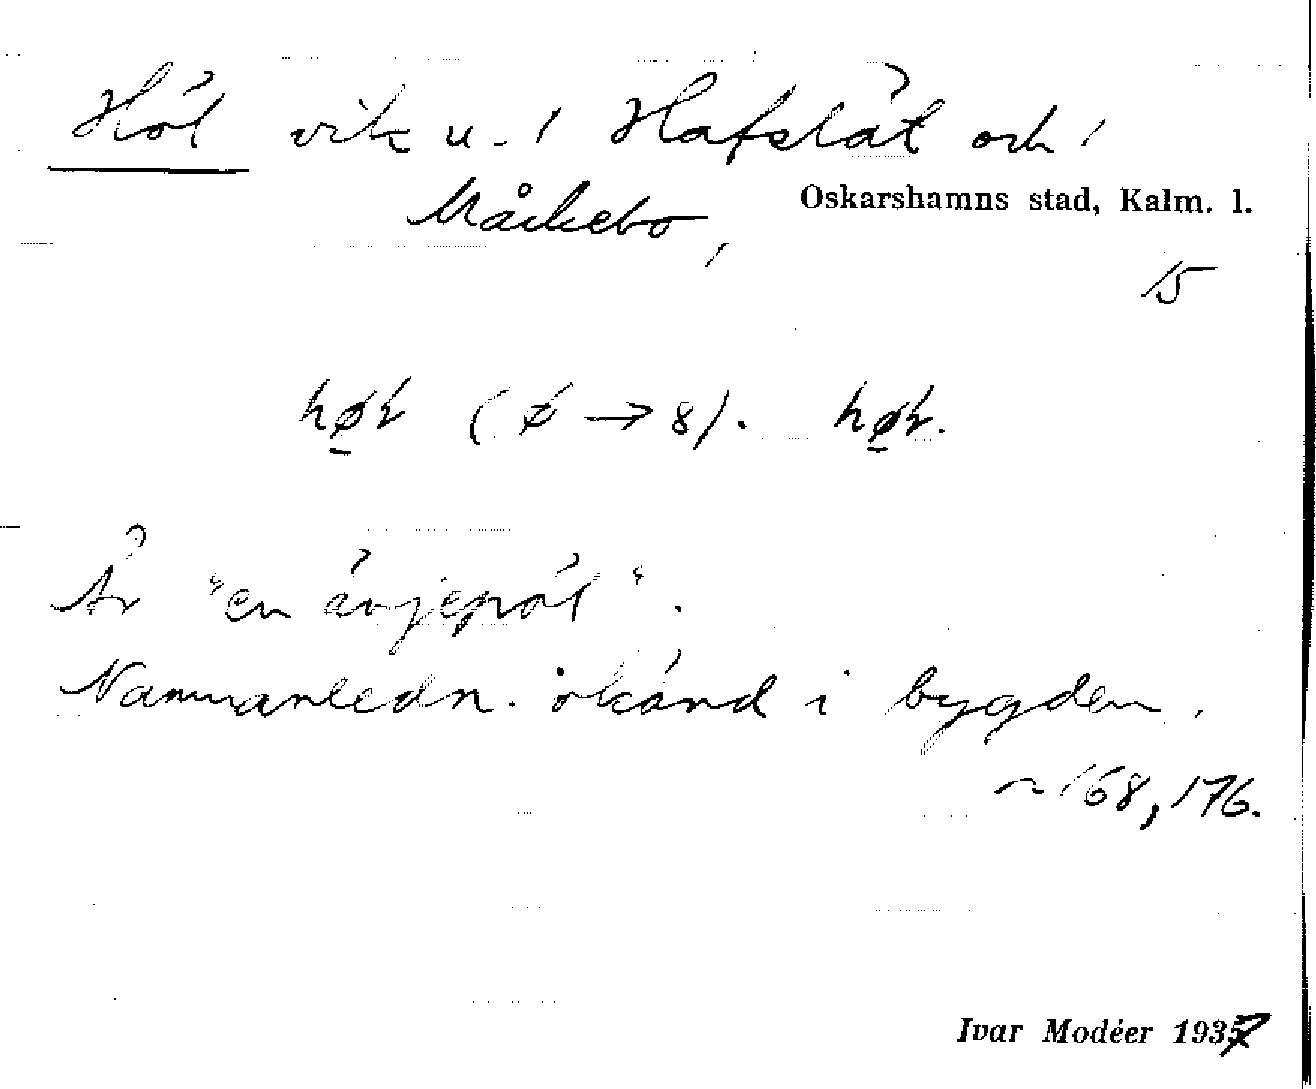 Höl vik u. / Hafslät och /
Måckebo,
Oskarshamns stad, Kalm. l.
15
høł (ø → 8). høł.
Är "en ävjepöl".
Namnanledn. okänd i bygden.
~ 168, 176.
Ivar Modéer 1937